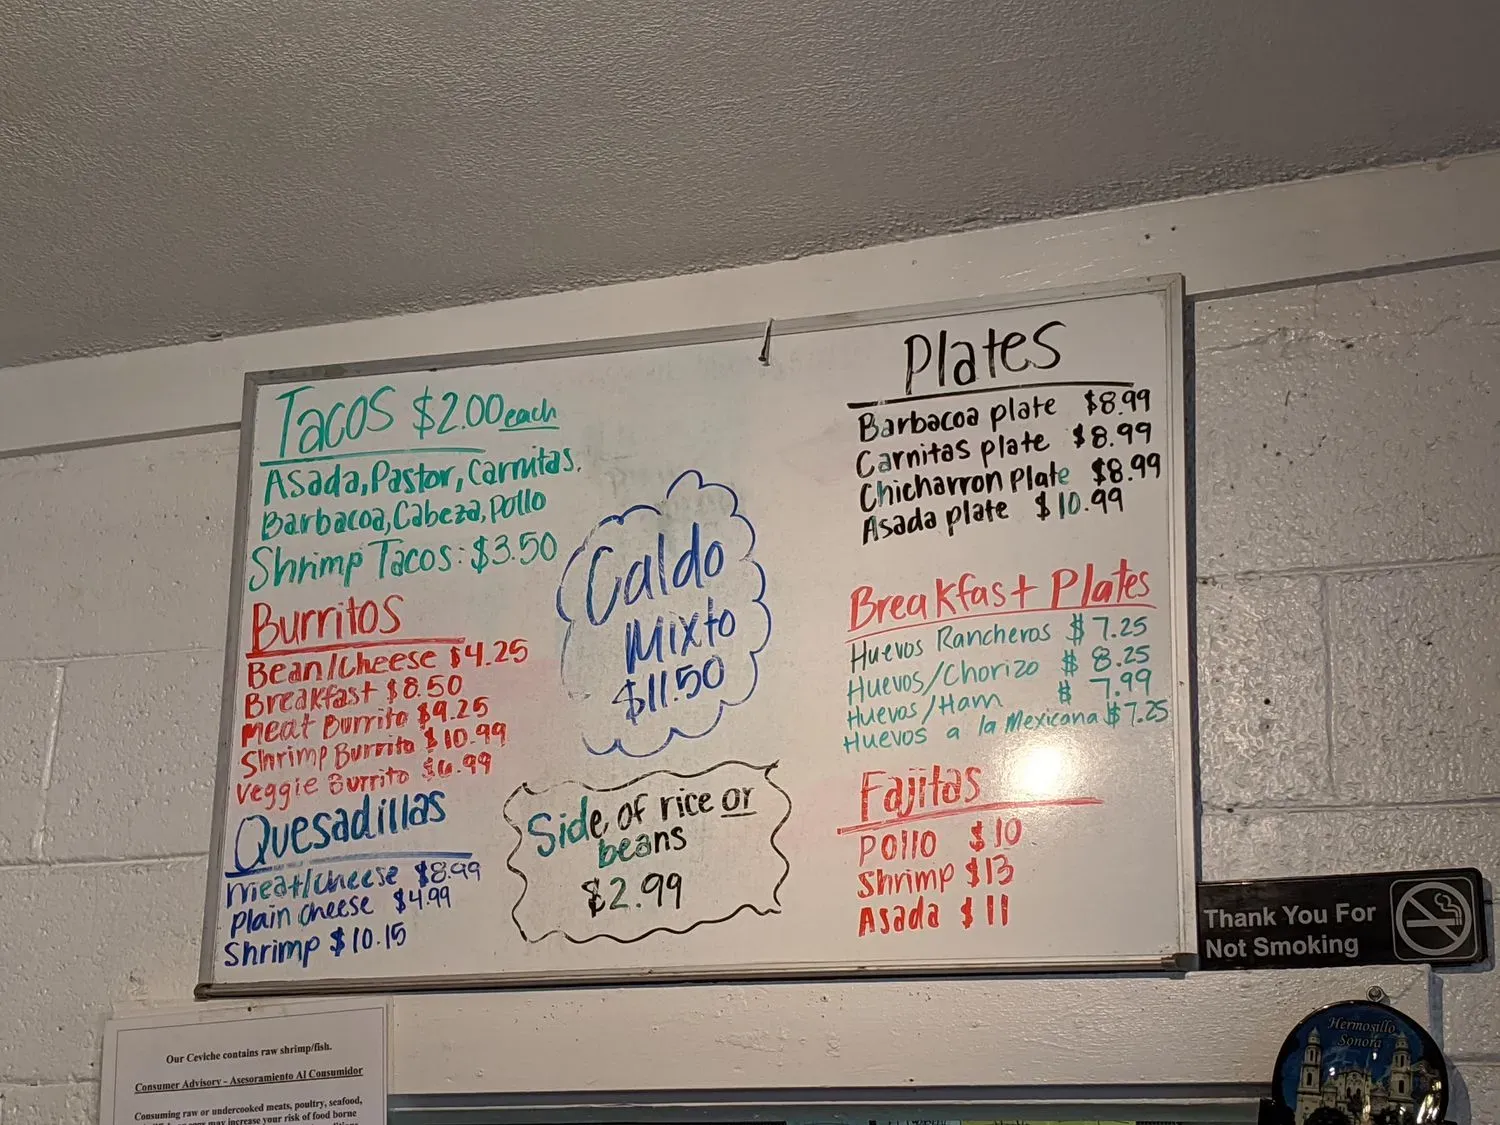 Tacos $2.00 each
Asada, Pastor, Carnitas,
Barbacoa, Cabeza, Pollo
Shrimp Tacos: $3.50
Burritos
Bean/Cheese $4.25
Breakfast $8.50
Meat Burrito $9.25
Shrimp Burrito $10.99
Veggie Burrito $6.99
Quesadillas
Meat/Cheese $8.99
Plain Cheese $4.99
Shrimp $10.15
Caldo
Mixto
$11.50
Side of rice or
beans
$2.99
Plates
Barbacoa plate $8.99
Carnitas plate $8.99
Chicharron Plate $8.99
Asada plate $10.99
Breakfast Plates
Huevos Rancheros $7.25
Huevos/Chorizo $8.25
Huevos/Ham $7.99
Huevos a la Mexicana $7.25
Fajitas
Pollo $10
Shrimp $13
Asada $11
Thank You For
Not Smoking
Our Ceviche contains raw shrimp/fish.
Consumer Advisory - Asesoramiento Al Consumidor
Consuming raw or undercooked meats, poultry, seafood,
may increase your risk of food borne
Hermosillo
Sonora